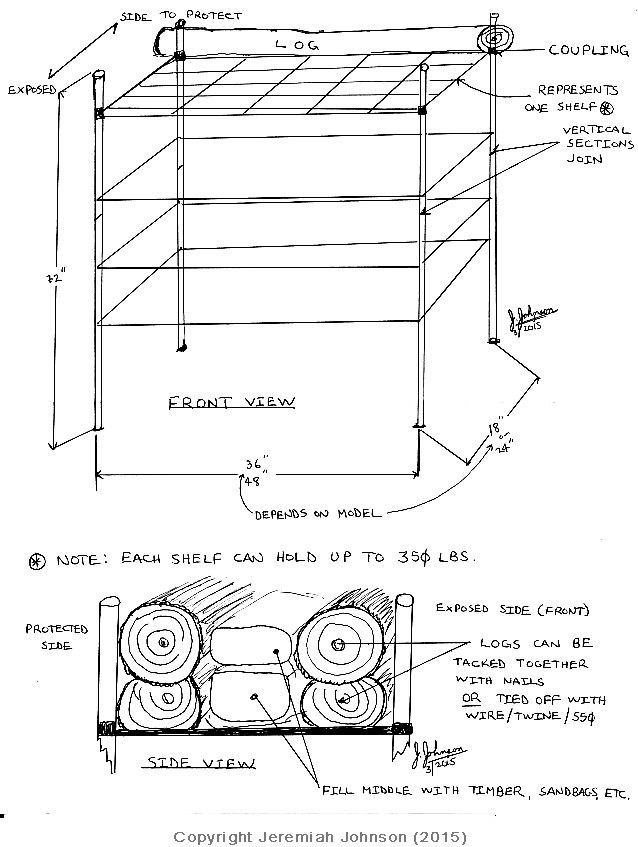 SIDE TO PROTECT
LOG
COUPLING
EXPOSED
REPRESENTS
ONE SHELF ⊛
VERTICAL
SECTIONS
JOIN
72"
J. Johnson
3/2015
FRONT VIEW
18"
or
24"
36"
48"
DEPENDS ON MODEL
⊛ NOTE: EACH SHELF CAN HOLD UP TO 350 LBS.
PROTECTED
SIDE
EXPOSED SIDE (FRONT)
LOGS CAN BE
TACKED TOGETHER
WITH NAILS
OR TIED OFF WITH
WIRE/TWINE/550
J. Johnson
3/2015
SIDE VIEW
FILL MIDDLE WITH TIMBER, SANDBAGS, ETC.
Copyright Jeremiah Johnson (2015)